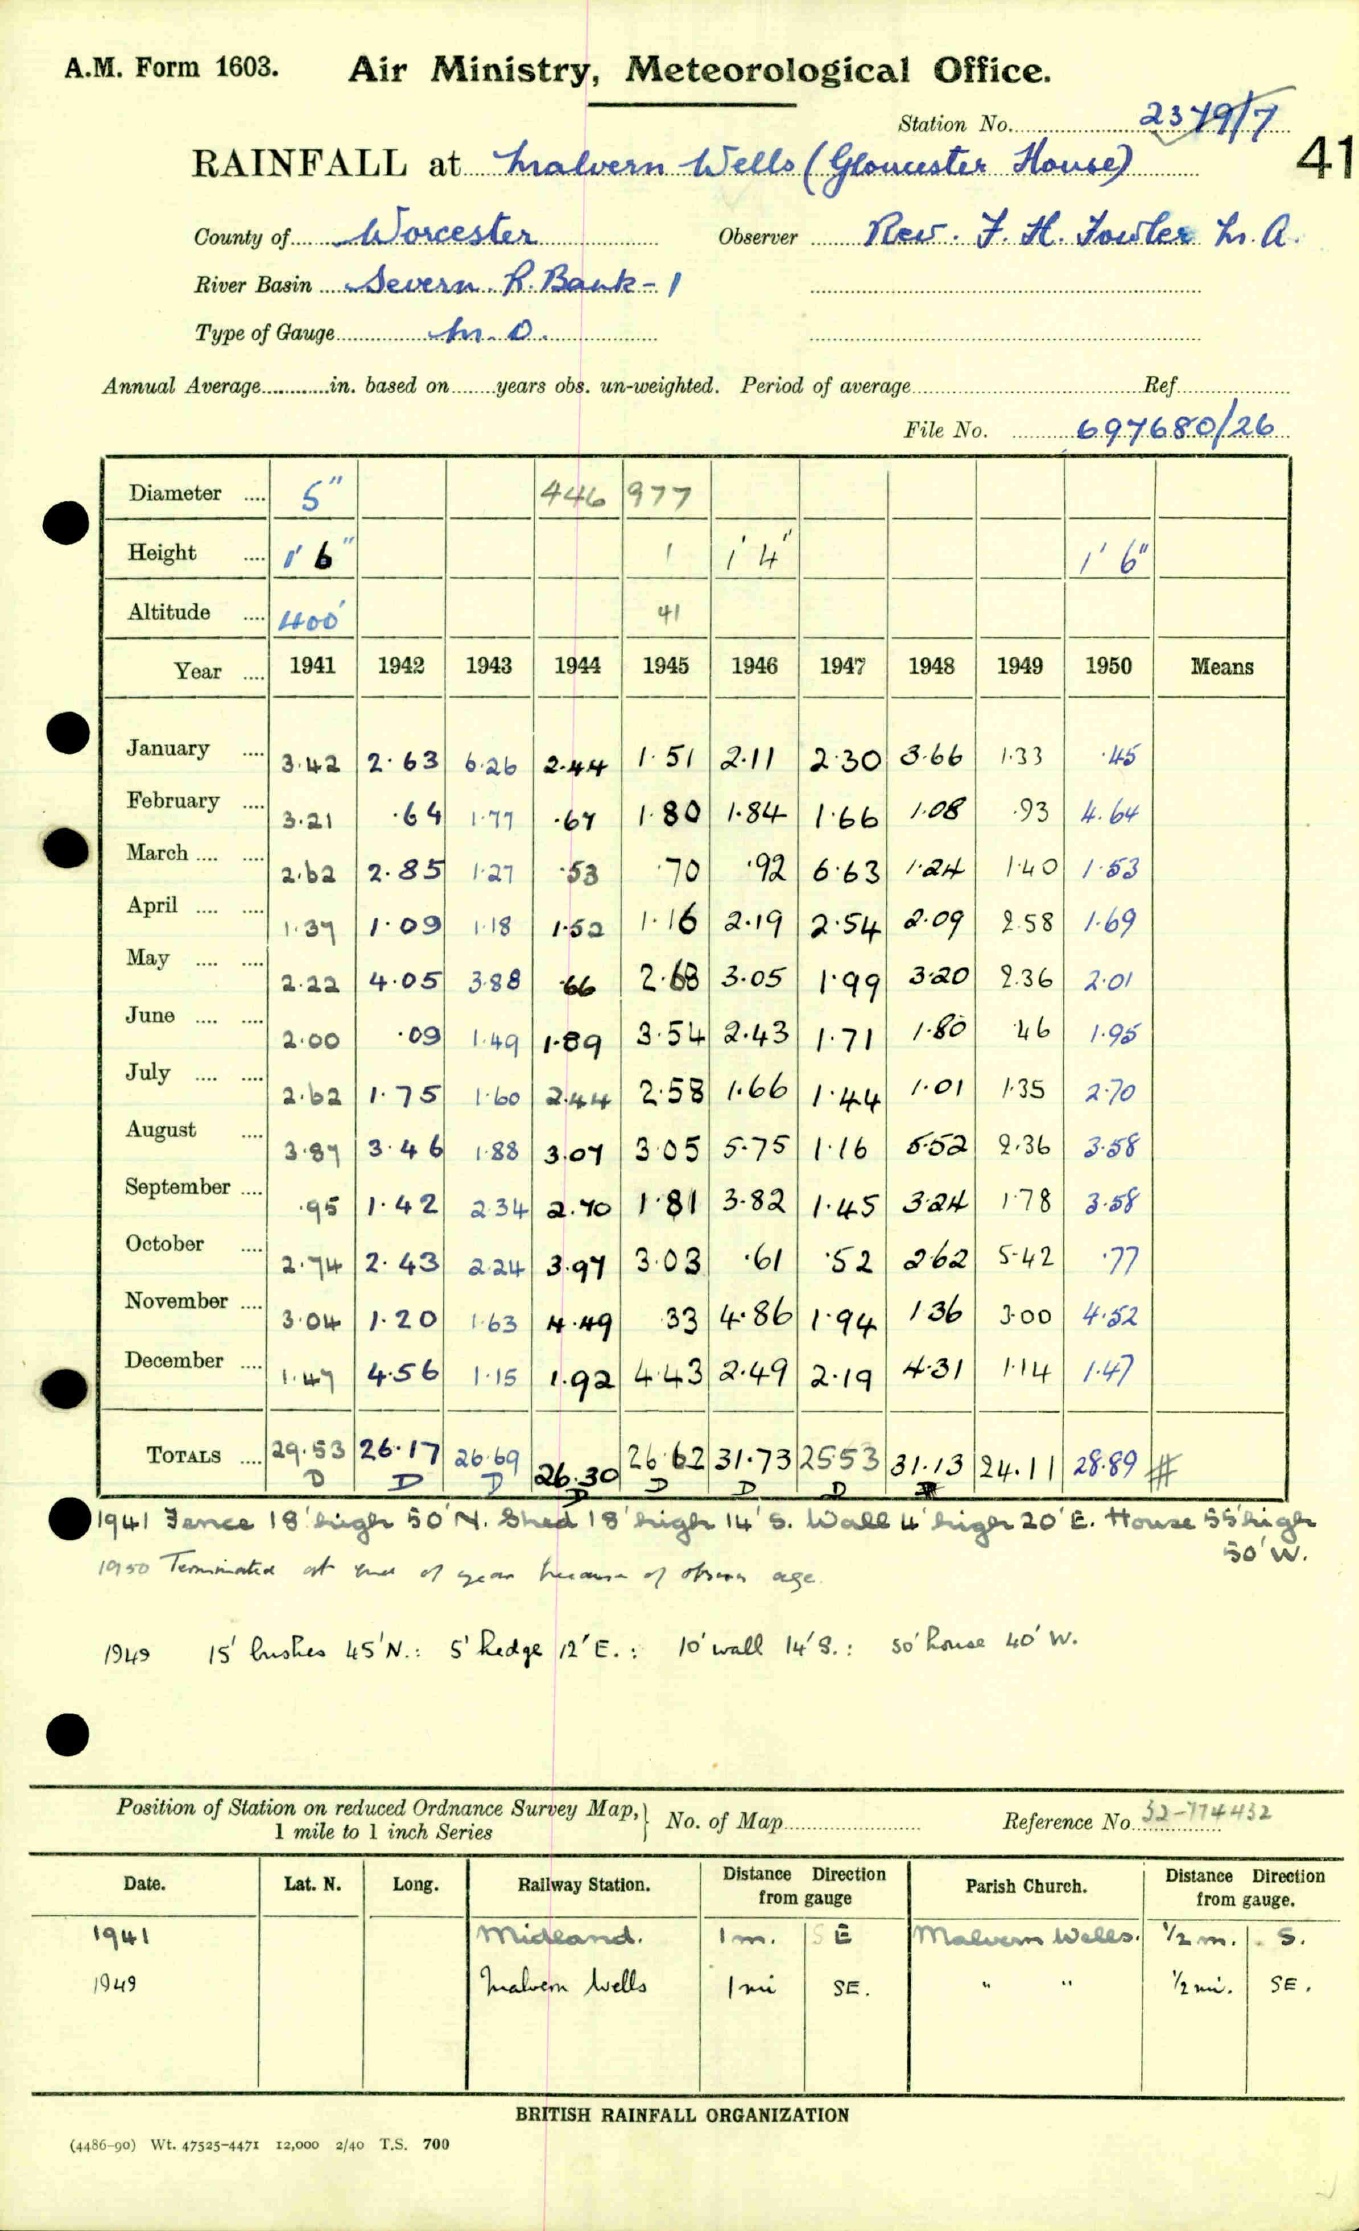 A.M. Form 1603. Air Ministry, Meteorological Office.
Station No. 2379/7
RAINFALL at Malvern Wells (Gloucester House) 41
County of Worcester Observer Rev. F. H. Fowler M.A.
River Basin Severn R. Bank - 1
Type of Gauge M.O.
Annual Average in. based on years obs. un-weighted. Period of average Ref
File No. 697680/26
Diameter 5" 446 977
Height 1' 6" 1 1' 4" 1' 6"
Altitude 400' 41
Year 1941 1942 1943 1944 1945 1946 1947 1948 1949 1950 Means
January 3.42 2.63 6.26 2.44 1.51 2.11 2.30 3.66 1.33 .45
February 3.21 .64 1.77 .67 1.80 1.84 1.66 1.08 .93 4.64
March 2.62 2.85 1.27 .53 .70 .92 6.63 1.24 1.40 1.53
April 1.37 1.09 1.18 1.52 1.16 2.19 2.54 2.09 2.58 1.69
May 2.22 4.05 3.88 .66 2.68 3.05 1.99 3.20 2.36 2.01
June 2.00 .09 1.49 1.89 3.54 2.43 1.71 1.80 .46 1.95
July 2.62 1.75 1.60 2.44 2.58 1.66 1.44 1.01 1.35 2.70
August 3.87 3.46 1.88 3.07 3.05 5.75 1.16 5.52 2.36 3.58
September .95 1.42 2.34 2.70 1.81 3.82 1.45 3.24 1.78 3.58
October 2.74 2.43 2.24 3.97 3.03 .61 .52 2.62 5.42 .77
November 3.04 1.20 1.63 4.49 .33 4.86 1.94 1.36 3.00 4.52
December 1.47 4.56 1.15 1.92 4.43 2.49 2.19 4.31 1.14 1.47
TOTALS 29.53 26.17 26.69 26.30 26.62 31.73 25.53 31.13 24.11 28.89 #
D D D D D D D
1941 Fence 18' high 50' N. Shed 18' high 14' S. Wall 4' high 20' E. House 55' high
50' W.
1950 Terminated at end of year because of age.
1949 15' bushes 45' N.: 5' hedge 12' E.: 10' wall 14' S.: 50' house 40' W.
Position of Station on reduced Ordnance Survey Map,
1 mile to 1 inch Series No. of Map Reference No 32-774432
Date. Lat. N. Long. Railway Station. Distance Direction from gauge Parish Church. Distance Direction from gauge.
1941 Midland. 1 m. S E Malvern Wells. 1/2 m. S.
1949 Malvern Wells 1 mi SE. " " 1/2 mi. SE.
BRITISH RAINFALL ORGANIZATION
(4486-90) Wt. 47525-4471 12,000 2/40 T.S. 700